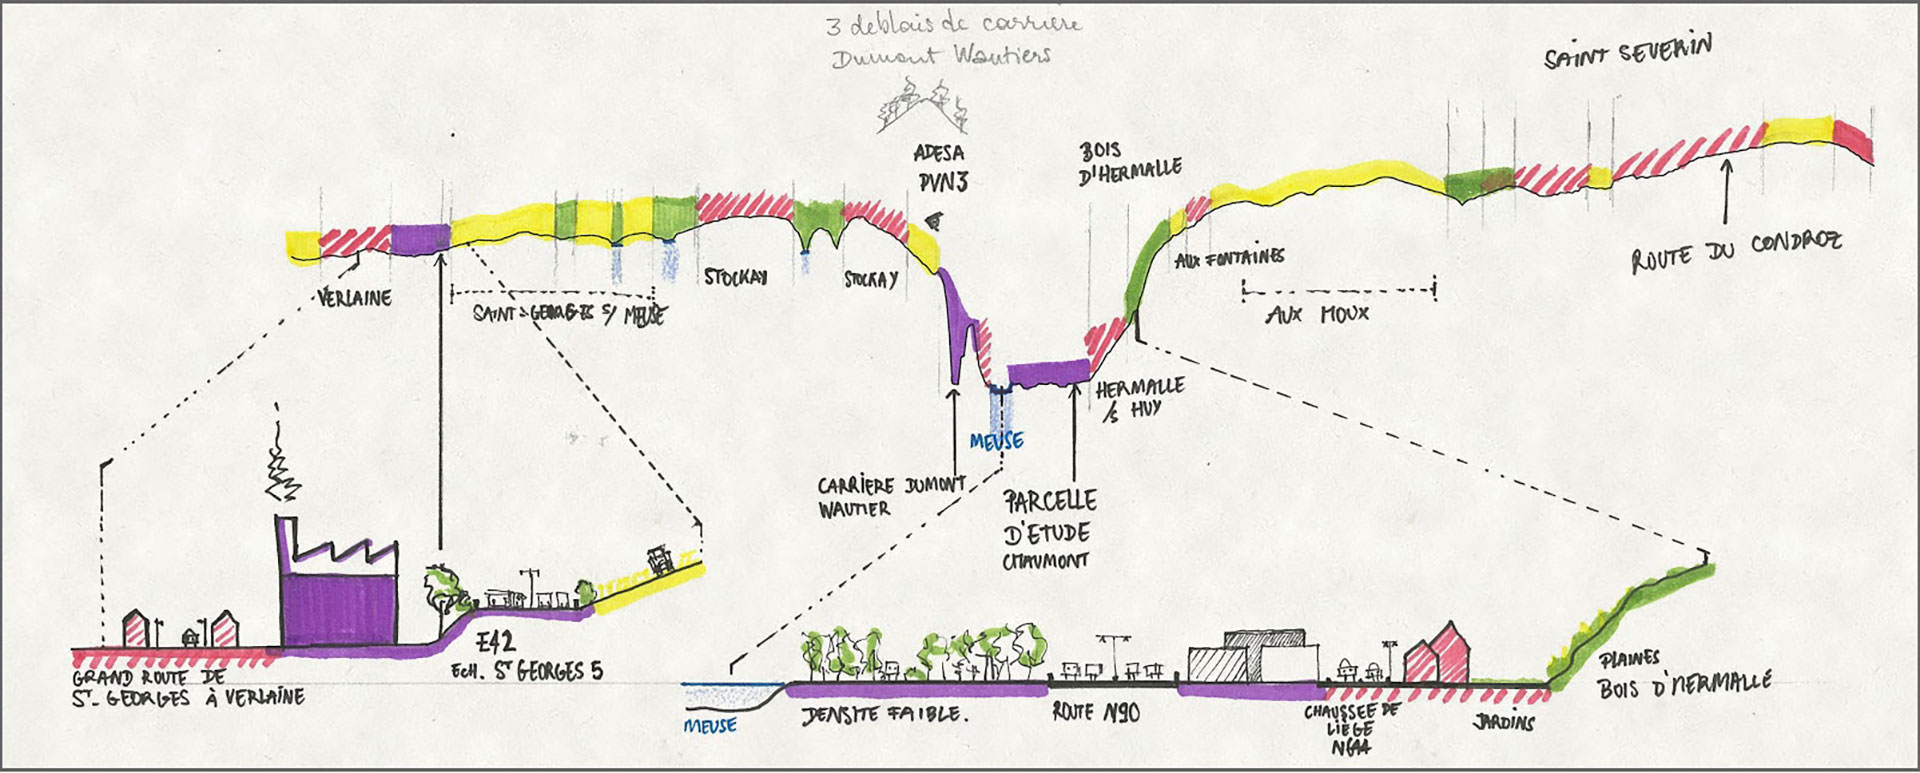 3 deblais de carriere
Dumont Wautiers
SAINT SEVERIN
ADESA
PVN3
BOIS
D'HERMALLE
ROUTE DU CONDROZ
AUX FONTAINES
STOCKAY
STOCKAY
VERLAINE
SAINT-GEORGES S/ MEUSE
AUX HOUX
HERMALLE
/S HUY
MEUSE
CARRIERE DUMONT
WAUTIER
PARCELLE
D'ETUDE
CHAUMONT
E42
ECH. ST GEORGES 5
GRAND ROUTE DE
ST-GEORGES À VERLAINE
PLAINES
BOIS D'HERMALLE
MEUSE
DENSITE FAIBLE.
ROUTE N90
CHAUSSEE DE
LIÈGE
N644
JARDINS